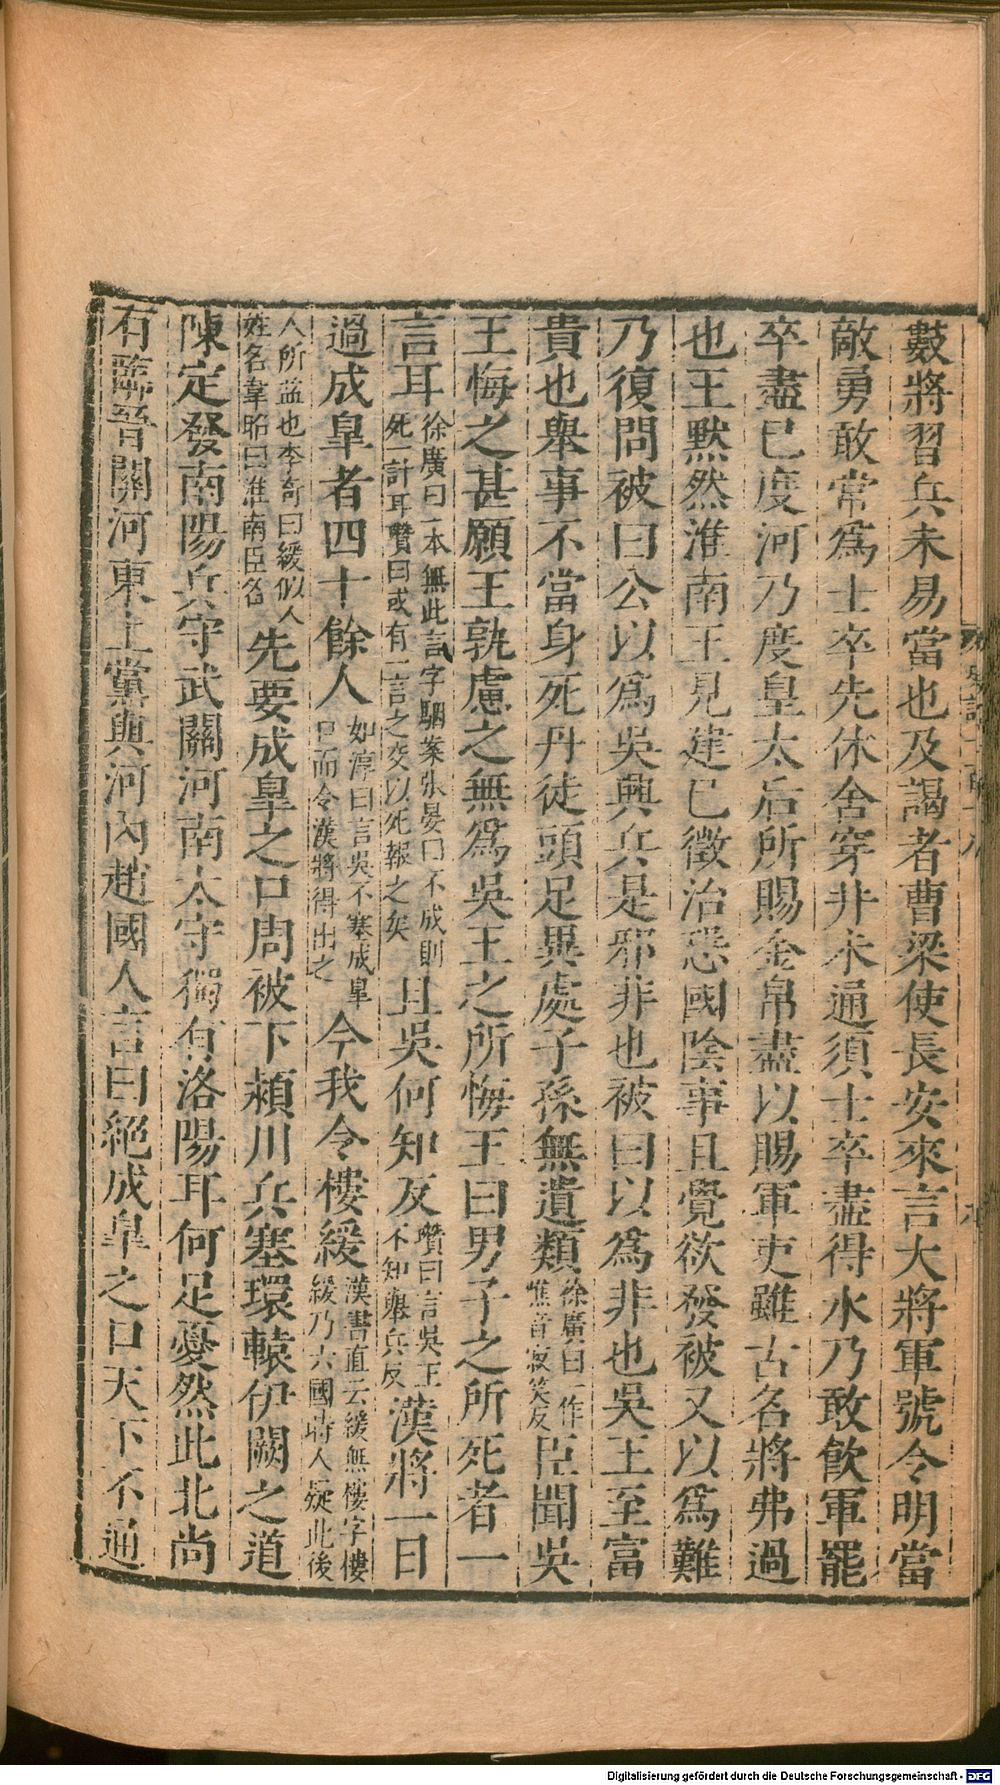 數將習兵未易當也及謁者曹梁使長安來言大將軍號令明當
敵勇敢常爲士卒先休舍穿井未通須士卒盡得水乃敢飮軍罷
卒盡已度河乃度皇太后所賜金帛盡以賜軍吏雖古名將弗過
也王默然淮南王見建已徵治恐國陰事且覺欲發被又以爲難
乃復問被曰公以爲吳興兵是邪非也被曰以爲非也吳王至富
貴也舉事不當身死丹徒頭足異處子孫無遺類徐廣曰一作憔音寂笑反臣聞吳
王悔之甚願王孰慮之無爲吳王之所悔王曰男子之所死者一
言耳徐廣曰一本無此言字駰案張晏曰不成則死一計耳瓚曰或有一言之交以死報之矣且吳何知反瓚曰言吳王不知舉兵反漢將一日
過成臯者四十餘人如淳曰言吳不塞成臯口而令漢將得出之今我令樓緩漢書直云緩無樓字樓緩乃六國時人疑此後
人所益也李奇曰緩似人姓名韋昭曰淮南臣名先要成臯之口周被下潁川兵塞環轅伊闕之道
陳定發南陽兵守武關河南太守獨有洛陽耳何足憂然此北尚
有臨晉關河東上黨與河內趙國人言曰絕成臯之口天下不通
Digitalisierung gefördert durch die Deutsche Forschungsgemeinschaft - DFG